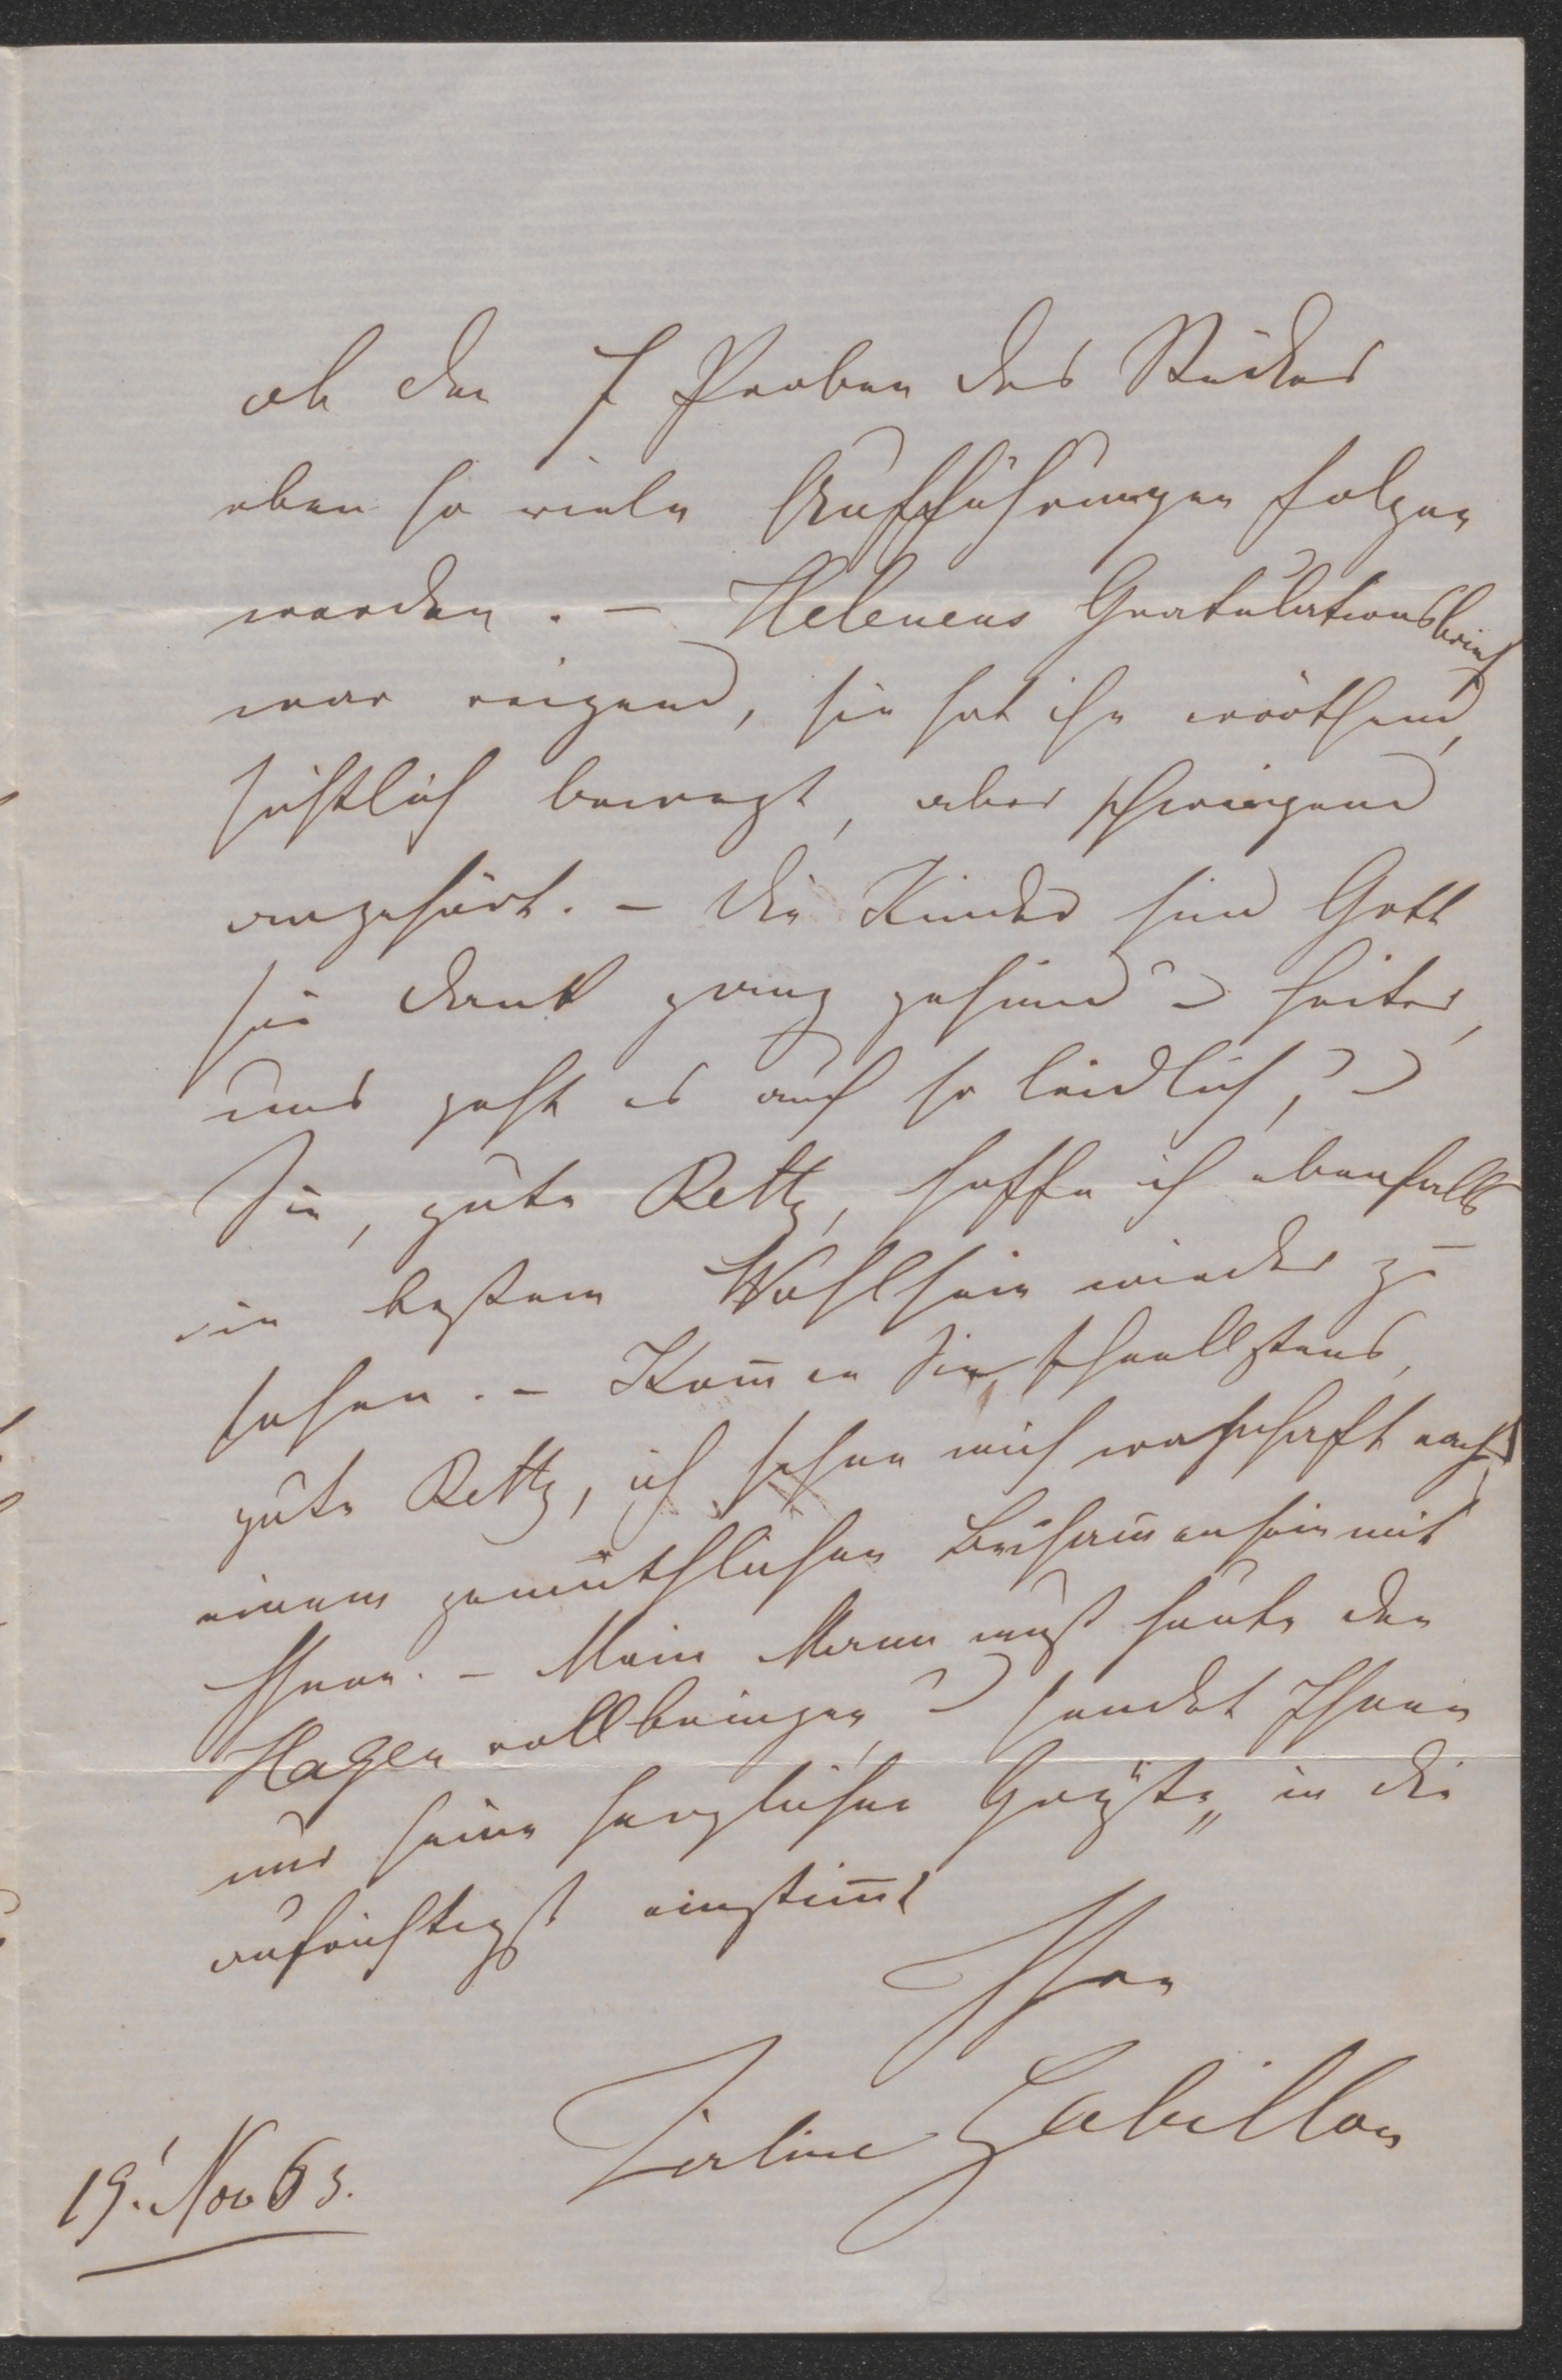 ob den 7 Proben des Stückes
eben so viele Aufführungen folgen
werden. – Helenens Gratulationsbrief
war reizend, sie hat ihn erröthend,
sichtlich bewegt, aber schweigend
angehört. – Die Kinder sind Gott
sei Dank ganz gesund u heiter,
uns geht es auch so leidlich, u
Sie, gute Betty, hoffe ich ebenfalls
in bestem Wohlsein wieder zu
sehen. – Kom̄en Sie schnellstens,
gute Betty, ich sehne mich wahrhaft nach
einem gemüthlichen Beisam̄ensein mit
Ihnen. – Mein Mann muß heute den
Hagen vollbringen, u sendet Ihnen
nur seine herzlichen Grüße, in die
aufrichtigst einstim̄t
Ihre
Zerline Gabillon
19. Nov 63.